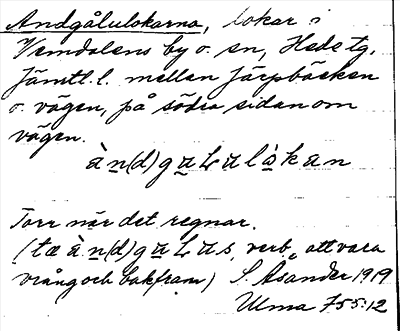 Andgålulokarna, lokar i
Vemdalens by o. sn, Hede tg,
Jämtl. l. mellan Järpbäcken
o. vägen, på södra sidan om
vägen.
à n(d) g a L u l ò k a n
Torr når det regnar.
(tæ à n(d) g a L u s, verb, „att vara
vrång och bakfram) S. Åsander 1919
Ulma 755:12